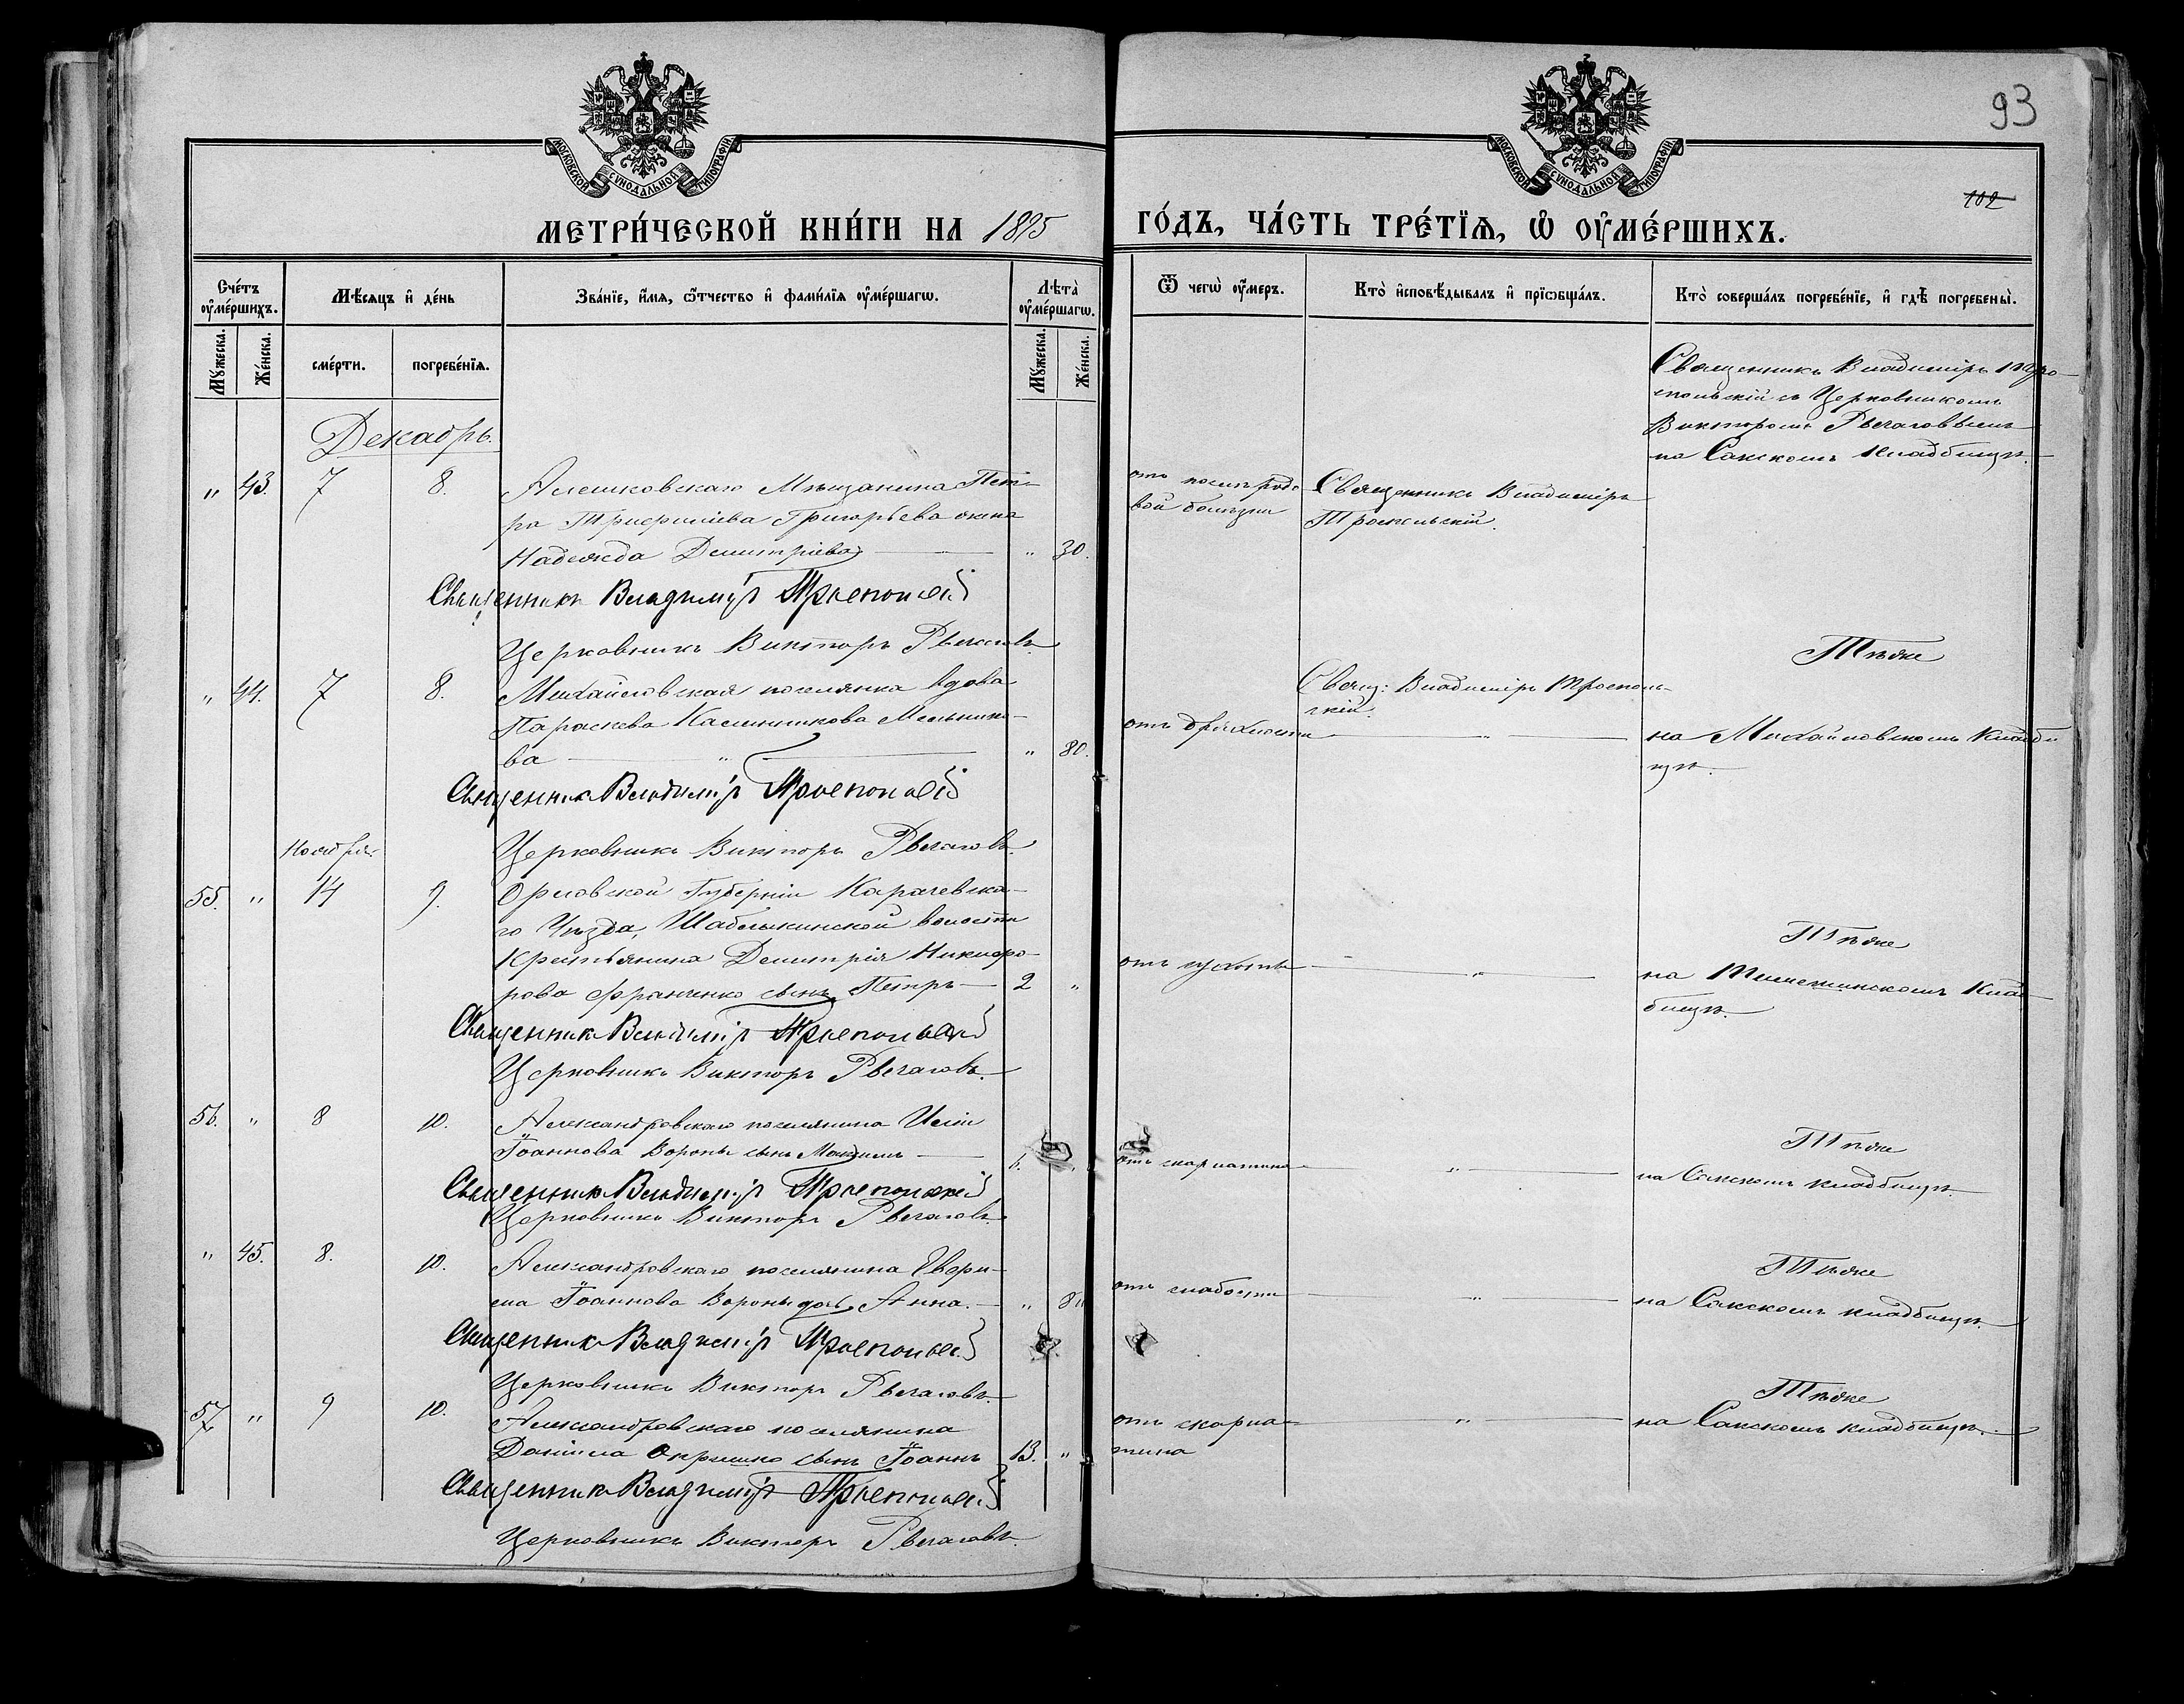 93
102
МОСКОВСКОЙ СУНОДАЛЬНОЙ ТИПОГРАФІИ
МОСКОВСКОЙ СУНОДАЛЬНОЙ ТИПОГРАФІИ
МЕТРИ́ЧЕСКОЙ КНИ́ГИ НА 1895 ГО́ДЪ, ЧА́СТЬ ТРЕ́ТІѦ, Ѡ ОУМЕ́РШИХЪ.
Сче́тъ оуме́ршихъ.
Мѣсяцъ и де́нь
Зва́ніе, и́мя, ѻтчество и фами́лія оуме́ршагѡ.
Лѣта̀ оуме́ршагѡ.
Ѿ чегѡ̀ оу́меръ.
Кто̀ исповѣ́дывалъ и пріѡбща́лъ.
Кто̀ соверша́лъ погребе́ніе, и гдѣ̀ погребены̀.
Му́жеска. Же́нска. сме́рти. погребе́нія. Му́жеска. Же́нска.
Священникъ Владиміръ
съ Церковникомъ
Викторомъ Рвачаговымъ
на Сакскомъ кладбищѣ.
Декабрь.
" 43. 7 8. Алешковскаго Мѣщанина Пет-
ра Григорьева жена
Надежда Димитріева " 30.
отъ послѣродо-
вой болѣзни
Священникъ Владиміръ
Троепольскій.
Священникъ Владиміръ Троепольскій
Церковникъ Викторъ Рвачаговъ
Тѣже
" 44. 7 8. Михайловская поселянка вдова
Параскева Калинникова Мельнико-
ва " " 80.
отъ дряхлости
Свящ: Владиміръ Троеполь-
скій.
на Михайловскомъ кладби
щѣ.
Священникъ Владиміръ Троепольскій
Церковникъ Викторъ Рвачаговъ.
Ноября
55. " 14 9. Орловской Губерніи Карачевска-
го Уѣзда, Шаблыкинской волости
Крестьянина Димитрія Никифо-
рова сынъ Петръ 2 "
Тѣже
на кла
бищѣ.
Священникъ Владиміръ Троепольскій
Церковникъ Викторъ Рвачаговъ.
56. " 8 10. Александровскаго поселянина
Іоаннова Вороны сынъ Максимъ
отъ скарлатины "
Тѣже
на Сакскомъ кладбищѣ.
Священникъ Владиміръ Троепольскій
Церковникъ Викторъ Рвачаговъ
" 45. 8. 10. Александровскаго поселянина
Іоаннова Вороны дочь Анна. "
отъ слабости "
Тѣже
на Сакскомъ кладбищѣ.
Священникъ Владиміръ Троепольскій
Церковникъ Викторъ Рвачаговъ
57 " 9 10. Александровскаго поселянина
Даніила сынъ Іоаннъ 13. "
отъ скарла-
тина
Тѣже
на Сакскомъ кладбищѣ.
Священникъ Владиміръ Троепольскій
Церковникъ Викторъ Рвачаговъ.